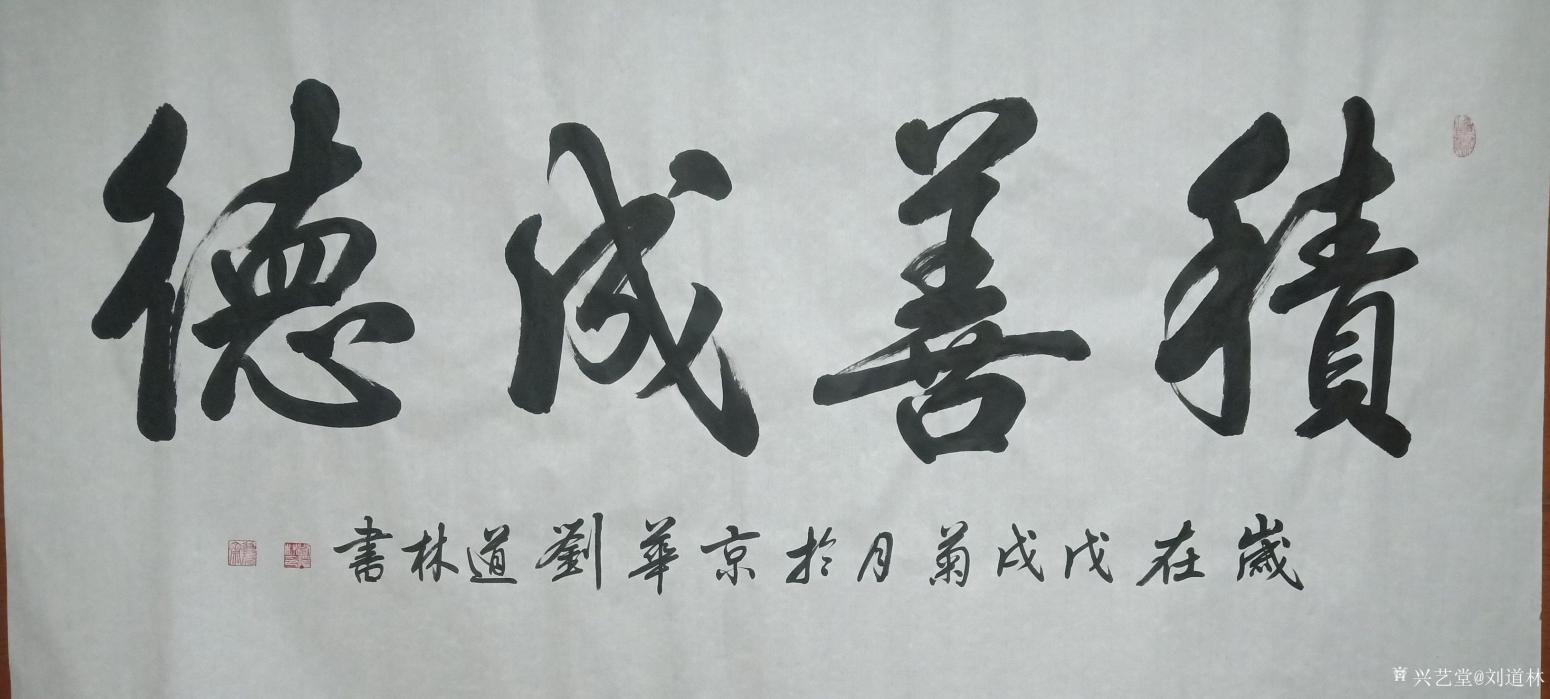 積善成德
歲在戊戌菊月於京華劉道林書
兴艺堂@刘道林